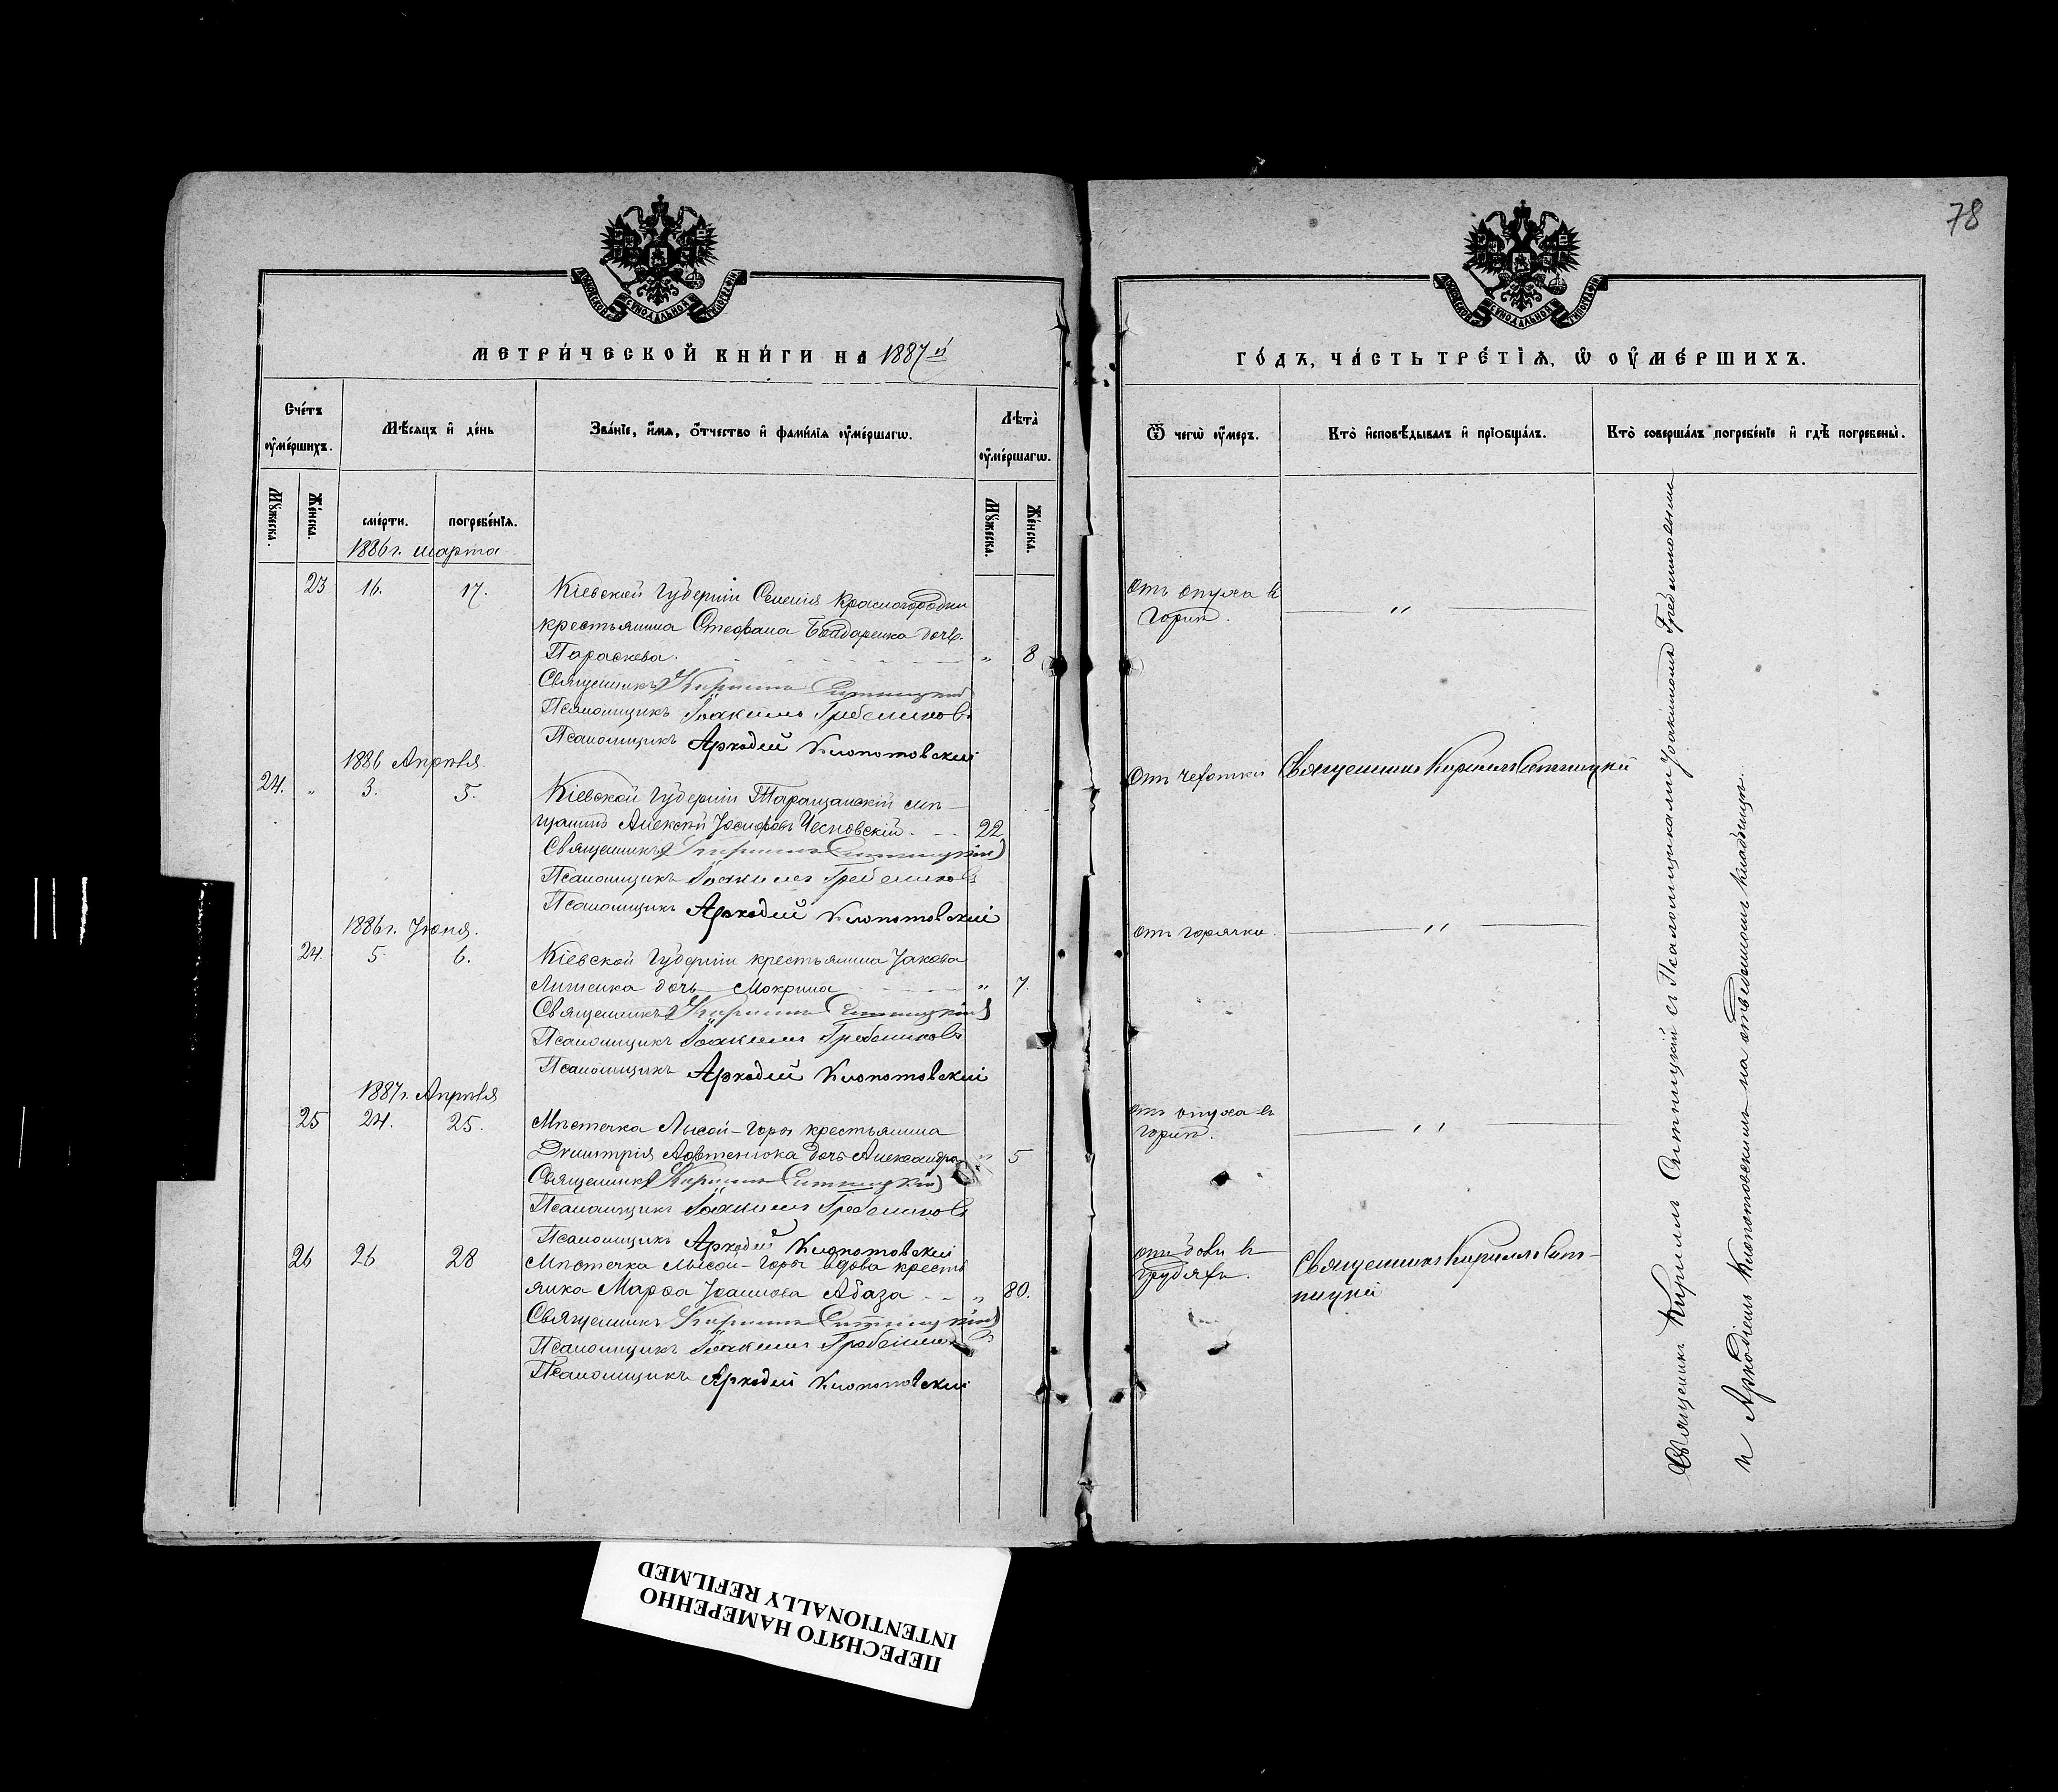 78
МОСКОВСКОЙ СѴНОДАЛЬНОЙ ТИПОГРАФІИ
МОСКОВСКОЙ СѴНОДАЛЬНОЙ ТИПОГРАФІИ
МЕТРИ́ЧЕСКОЙ КНИ́ГИ НА 1887й
ГО́ДЪ, ЧА́СТЬ ТРЕ́ТІѦ, Ѡ҆ ОУ҆МЕ́РШИХЪ.
Сче́тъ оу҆ме́ршихъ.
Мѣ́сяцъ и҆ де́нь
Зва́нїе, и҆́мя, ѻ҆́тчество и҆ фами́лїя оу҆ме́ршагѡ.
Лѣ́та оу҆ме́ршагѡ.
Ѿ чегѡ̀ оу҆́меръ.
Кто̀ и҆сповѣ́дывалъ и҆ прїобща́лъ.
Кто̀ соверша́лъ погребе́нїе и҆ гдѣ̀ погребены̀.
Мꙋ́жеска.
Же́нска.
сме́рти.
погребе́нїѧ.
Мꙋ́жеска.
Же́нска.
1886 г. марта
23 16. 17. Кіевской губерніи Селенія Красногородки
крестьянина Стефана Бондаренка дочь
Параскева. „ 8
Священникъ Кириллъ Ситницкій
Псаломщикъ Іоакимъ Гребенниковъ
Псаломщикъ Аркадій Клопотовскій
отъ опуха въ
горлѣ. „
1886 Апрѣля
24. „ 3. 5. Кіевской губерніи Таращанскій мѣ-
щанинъ Алексѣй Іосифовъ Чесновскій 22
Священникъ Кириллъ Ситницкій
Псаломщикъ Іоакимъ Гребенниковъ
Псаломщикъ Аркадій Клопотовскій
Отъ чехотки Священникъ Кириллъ Ситницкій
1886 г. Іюня.
24. 5 6. Кіевской губерніи крестьянина Іакова
Литенка дочь Мокрина „ 7.
Священникъ Кириллъ Ситницкій
Псаломщикъ Іоакимъ Гребенниковъ
Псаломщикъ Аркадій Клопотовскій
отъ горячки. „
1887 г. Апрѣля
25 24. 25. Мѣстечка Лысой-Горы крестьянина
Димитрія Автенюка дочь Александра „ 5
Священникъ Кириллъ Ситницкій
Псаломщикъ Іоакимъ Гребенниковъ
Псаломщикъ Аркадій Клопотовскій
отъ опуха въ
горлѣ. „
26 26 28 Мѣстечка Лысой-Горы вдова кресть
янка Марѳа Іоаннова Абаза „ 80.
Священникъ Кириллъ Ситницкій
Псаломщикъ Іоакимъ Гребенниковъ
Псаломщикъ Аркадій Клопотовскій
отъ боли въ
грудяхъ.
Священникъ Кириллъ Сит-
ницкій
Священникъ Кириллъ Ситницкій съ Псаломщиками Іоакимомъ Гребенниковымъ
и Аркадіемъ Клопотовскимъ на отведенномъ кладбищѣ.
ПЕРЕСНЯТО НАМЕРЕННО
INTENTIONALLY REFILMED